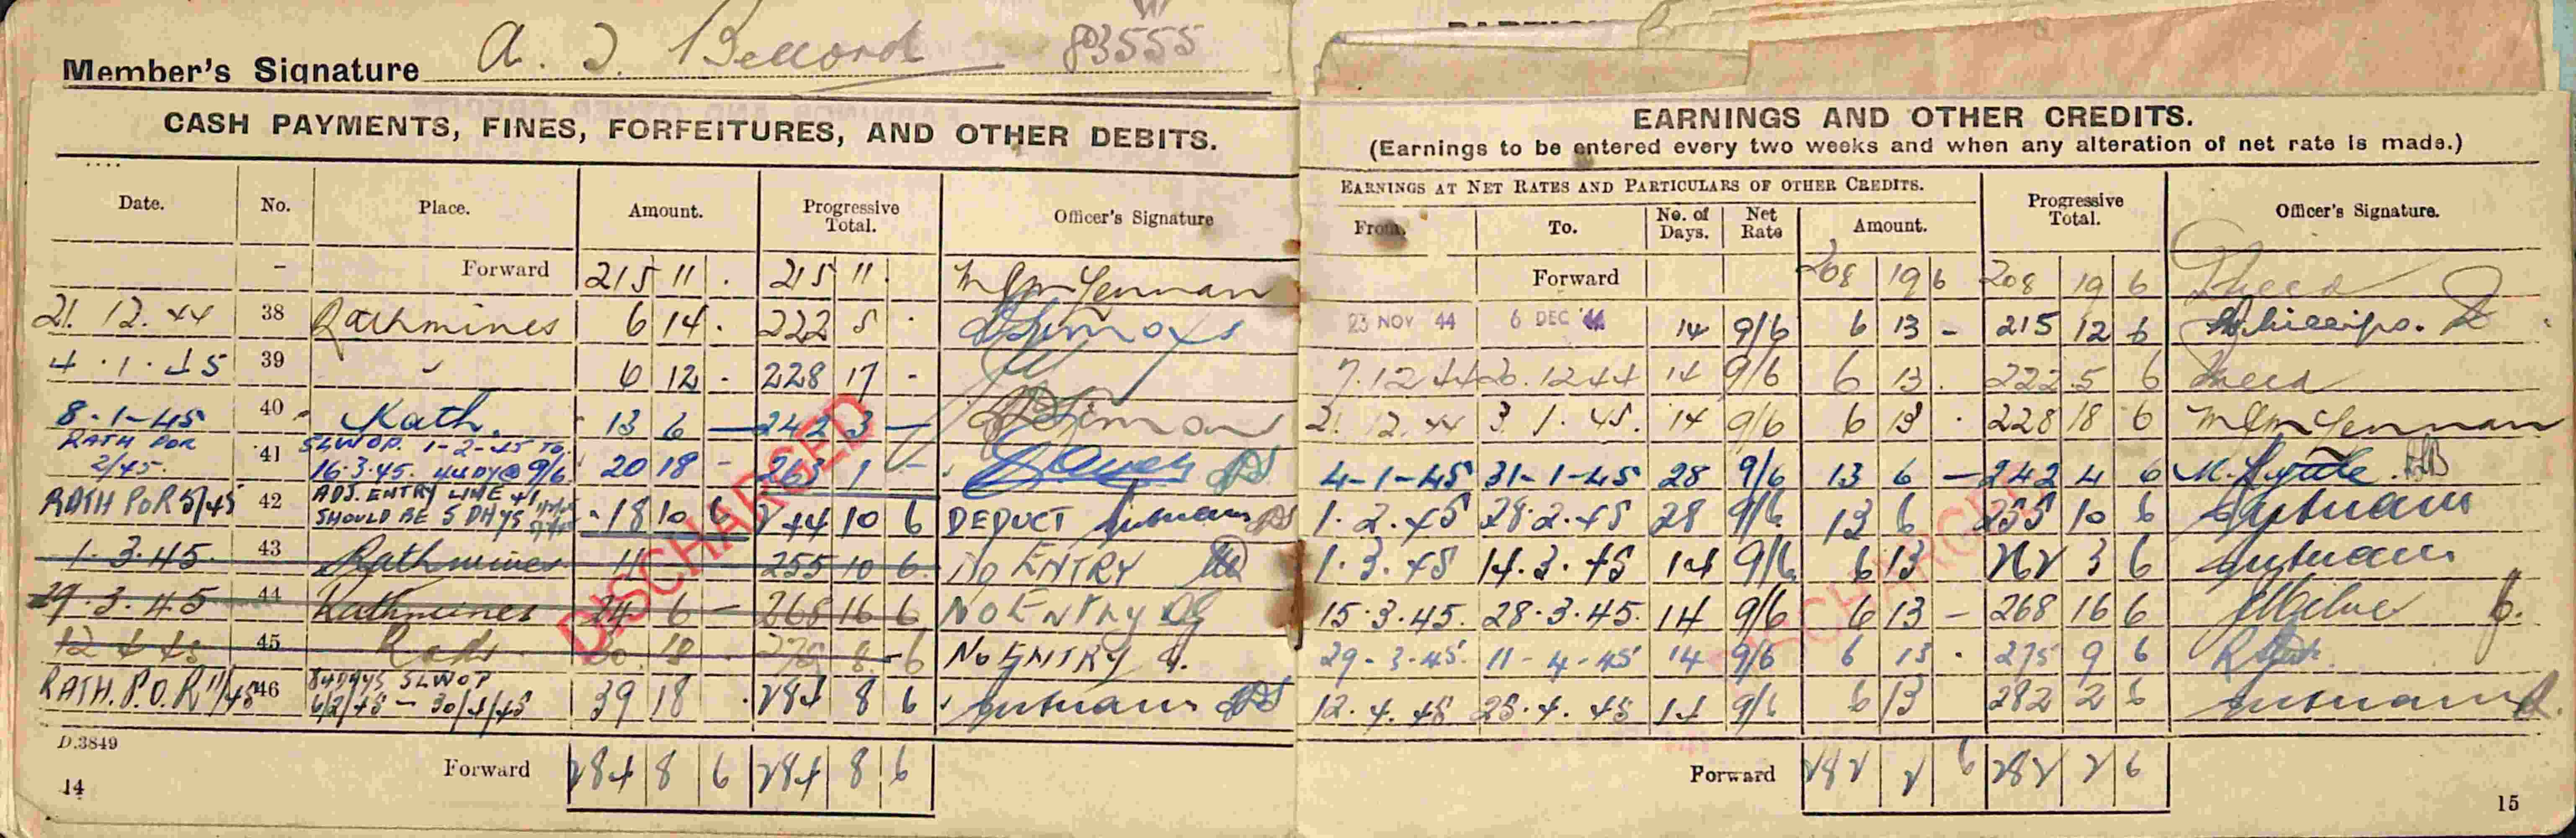 Member's Signature A. J. Bellord 83555
CASH PAYMENTS, FINES, FORFEITURES, AND OTHER DEBITS.
Date. No. Place. Amount. Progressive Total. Officer's Signature
- Forward 215 11 . 215 11 .
21. 12. 44 38 Rathmines 6 14 . 222 5 .
4 . 1 . 45 39 " 6 12 - 228 17 -
8-1-45 40 Rath. 13 6 — 242 3 —
RATH POR 2/45. 41 SLWOP. 1-2-45 TO 16.3.45. 44DY@9/6 20 18 - 263 1 -
RATH POR 5/45 42 ADJ. ENTRY LINE 41 SHOULD BE 5 DAYS 18 10 6 244 10 6 DEDUCT
1.3.45 43 Rathmines 11 255 10 6 NO ENTRY
29.3.45 44 Rathmines 24 6 — 268 16 6 NO ENTRY
12 4 45 45 Rath. 30 18 8 6 NO ENTRY
RATH. P.O.R 11/45 46 84 DAYS SLWOP 6/2/45 — 30/4/45 39 18 . 284 8 6
D.3849
Forward 284 8 6 284 8 6
14
DISCHARGED
EARNINGS AND OTHER CREDITS.
(Earnings to be entered every two weeks and when any alteration of net rate is made.)
EARNINGS AT NET RATES AND PARTICULARS OF OTHER CREDITS.
From. To. No. of Days. Net Rate Amount. Progressive Total. Officer's Signature.
Forward 208 19 6 208 19 6
23 NOV 44 6 DEC 44 14 9/6 6 13 - 215 12 6 Phillips.
7.12 44 20.12 44 14 9/6 6 13 . 222 5 6
21. 12. 44 3. 1. 45. 14 9/6 6 13 . 228 18 6
4-1-45 31-1-45 28 9/6 13 6 — 242 4 6
1. 2. 45 28. 2. 45 28 9/6 13 6 255 10 6
1. 3. 45 14. 3. 45 14 9/6 6 13 262 3 6
15.3.45. 28.3.45. 14 9/6 6 13 - 268 16 6
29-3-45. 11-4-45 14 9/6 6 13 . 275 9 6
12. 4. 45 25. 4. 45 14 9/6 6 13 282 2 6
Forward 282 2 6 282 2 6
15